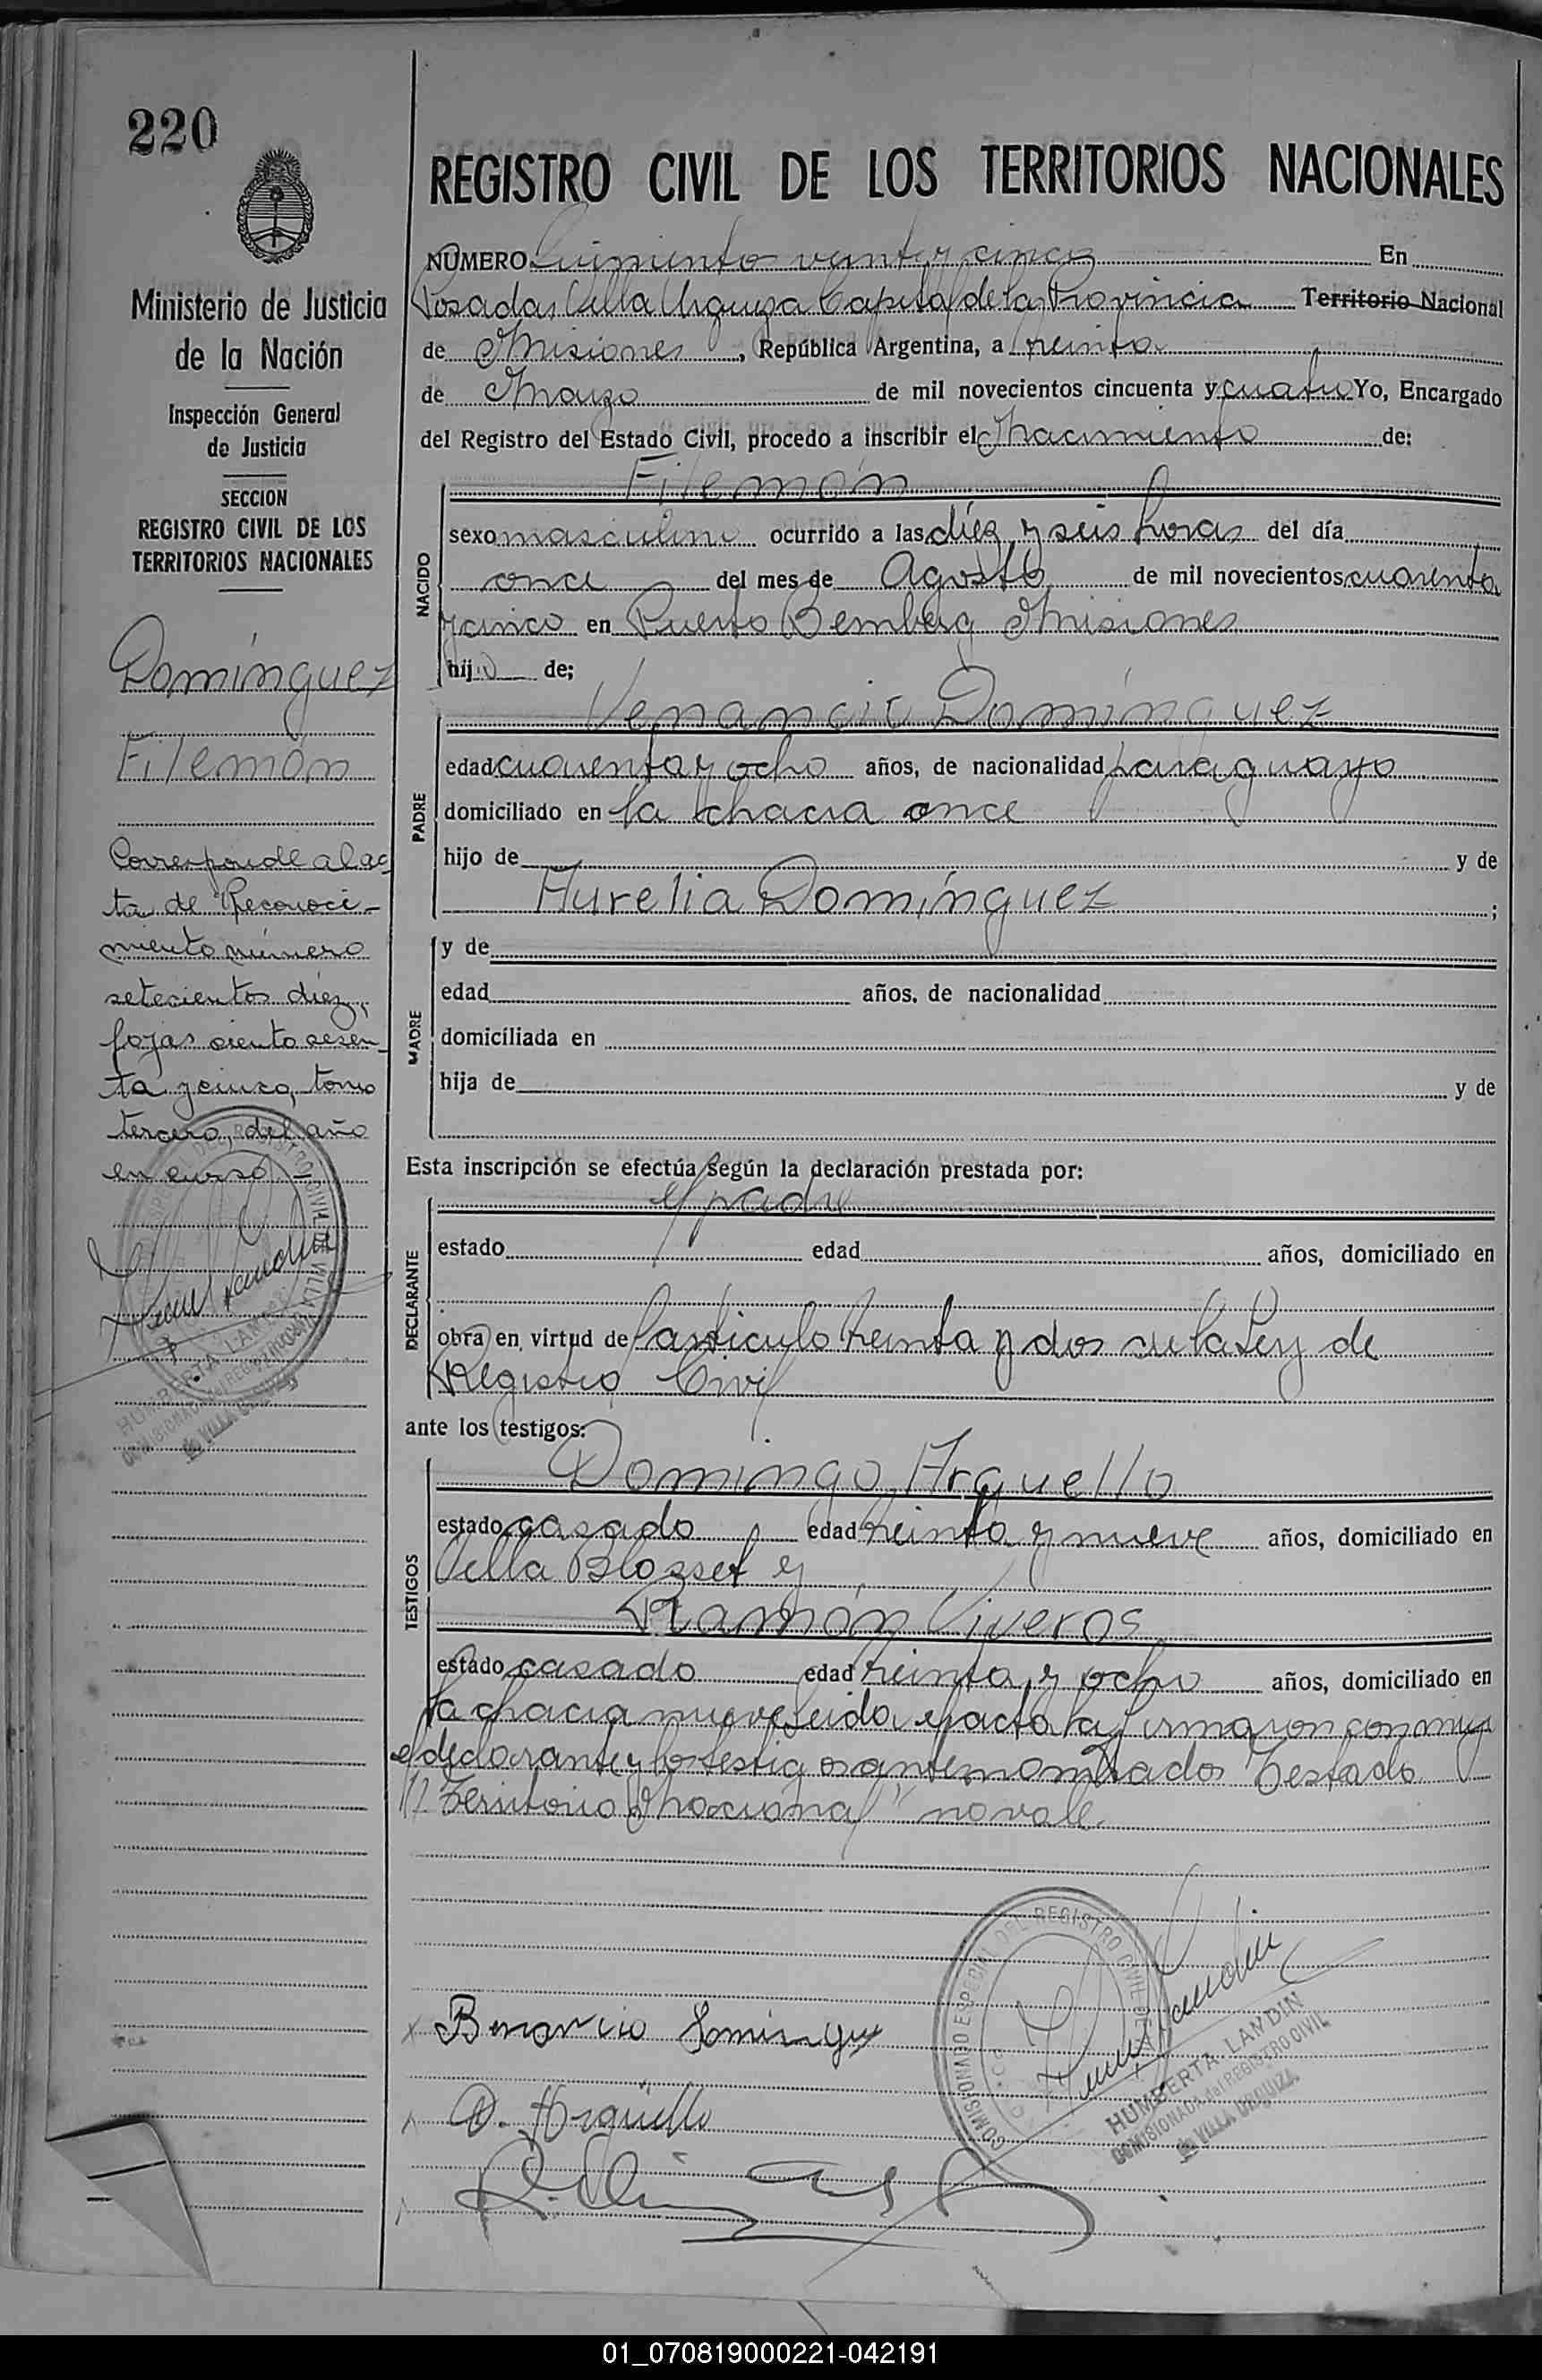 220
Ministerio de Justicia
de la Nación
Inspección General
de Justicia
SECCION
REGISTRO CIVIL DE LOS
TERRITORIOS NACIONALES
Domínguez
Filemón
Corresponde al ac
ta de Reconoci-
miento número
setecientos diez,
fojas ciento sesen-
ta y cinco, tomo
tercero, del año
en curso
HUMBERTA LANDIN
COMISIONADA del REGISTRO CIVIL
de VILLA URQUIZA
REGISTRO CIVIL DE LOS TERRITORIOS NACIONALES
NUMERO Quinientos veinte y cinco En
Posadas Villa Urquiza Capital de la Provincia Territorio Nacional
de Misiones, República Argentina, a treinta
de Marzo de mil novecientos cincuenta y cuatro Yo, Encargado
del Registro del Estado Civil, procedo a inscribir el Nacimiento de:
Filemón
NACIDO
sexo masculino ocurrido a las diez y seis horas del día
once del mes de Agosto de mil novecientos cuarenta
y cinco en Puerto Bemberg Misiones
hijo de;
Venancio Domínguez
PADRE
edad cuarenta y ocho años, de nacionalidad paraguayo
domiciliado en la chacra once
hijo de y de
Aurelia Domínguez ;
MADRE
y de
edad años, de nacionalidad
domiciliada en
hija de y de
Esta inscripción se efectúa según la declaración prestada por:
el padre
DECLARANTE
estado edad años, domiciliado en
obra en virtud del artículo treinta y dos de la Ley de
Registro Civil
ante los testigos:
Domingo Arguello
TESTIGOS
estado casado edad treinta y nueve años, domiciliado en
Villa Blosset y
Ramón Viveros
estado casado edad treinta y ocho años, domiciliado en
la chacra nueve Leida el acta la firmaron conmigo
el declarante y los testigos antemombrados Testado
"Territorio Nacional" no vale.
Benancio Dominguez
D. Argüello
COMISIONADO ESPECIAL DEL REGISTRO CIVIL
HUMBERTA LANDIN
COMISIONADA del REGISTRO CIVIL
de VILLA URQUIZA
01_070819000221-042191